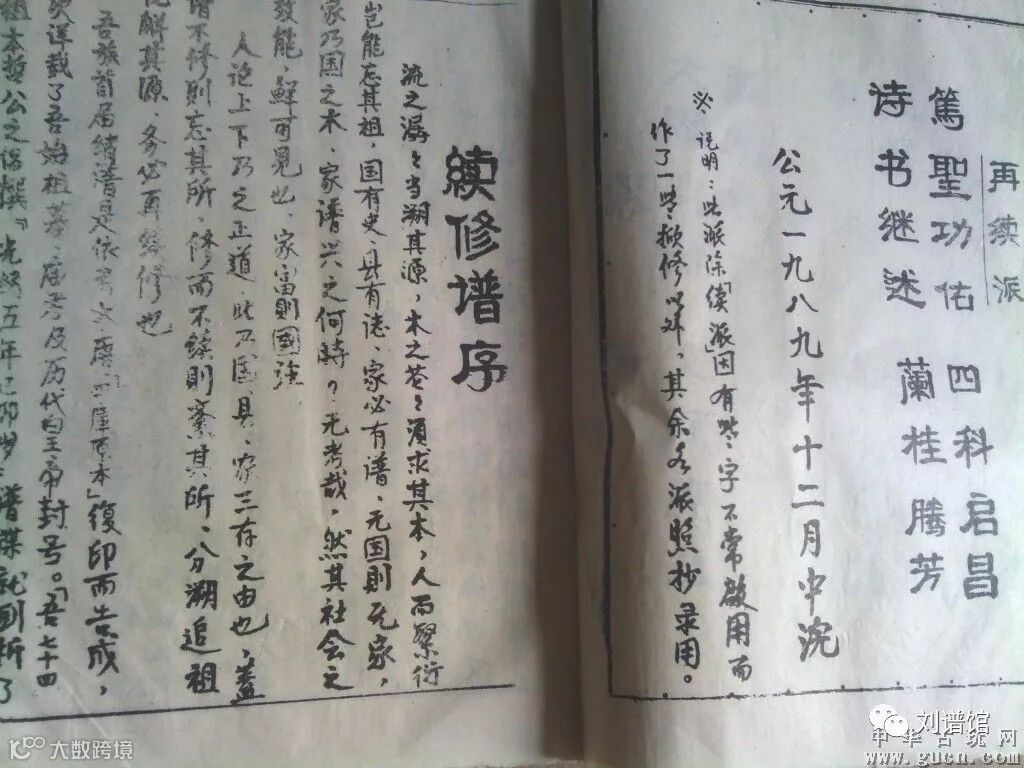 再续派
篤聖功佑 四科启昌
诗书继述 蘭桂腾芳
公元一九八九年十二月中浣
※说明：此派除「续派」因有些字不常啟用而
作了一些掀修以外，其余各派照抄录用。
续修谱序
流之潺々当溯其源，木之苍々须求其本，人而繁衍
岂能忘其祖，国有史，县有志，家必有谱，无国则无家，
家乃国之本，家谱兴之何時？无考哉，然其社会之
發能，鮮可見也，家富則國強
人论上下乃之正道 此乃国、县、家三存之由也，盖
谱不修則忘其所，修而不续則紊其所、分溯追祖
解其源，务必再续修也
吾族首届续清是依 本」復印而告成，
详裁了吾始祖墓、庙 及历代白王帝封号。「吾七十四
祖本哲公之 撰「光绪五年己卯岁 谱牒
刘谱馆
中华古玩网
www.gucn.com
大数跨境